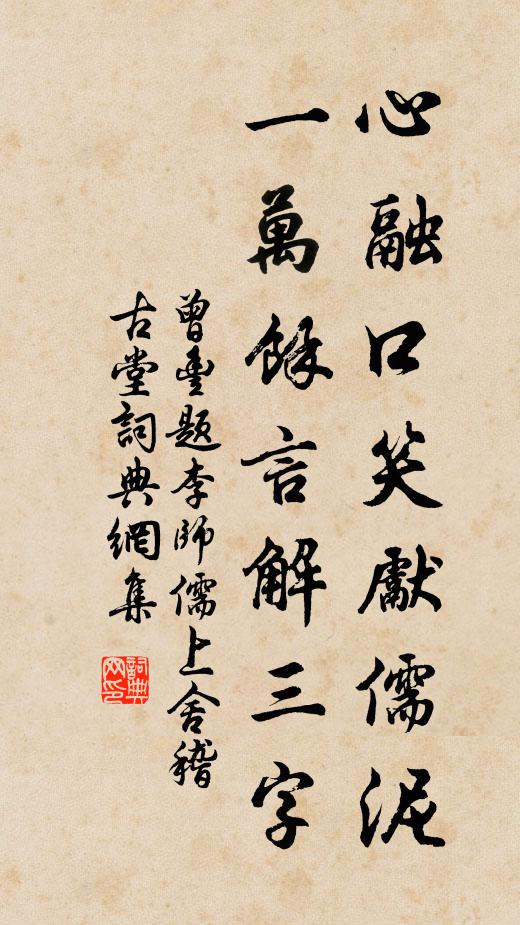 心融口笑獻儒泥
一萬餘言解三字
曾豐題李師儒上舍稽
古堂詞典網集
詞典網印